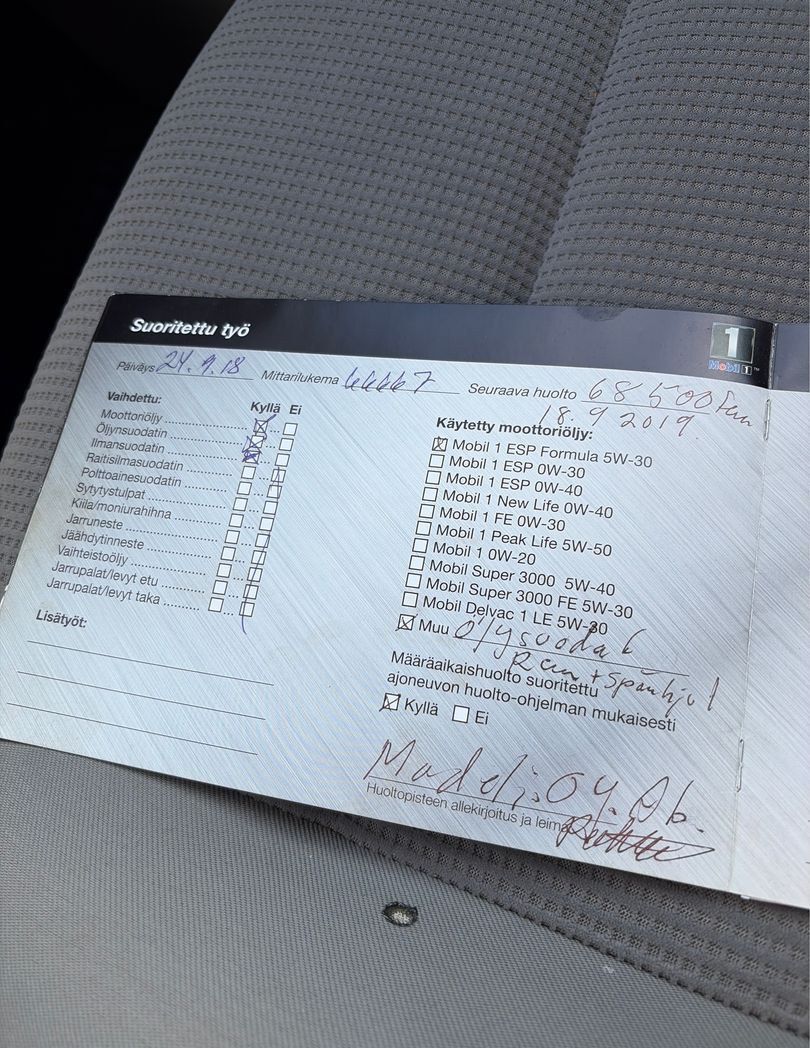 Suoritettu työ
1
Mobil 1™
Päiväys 24.9.18 Mittarilukema 66667 Seuraava huolto 68500
18.9 2019
Vaihdettu: Kyllä Ei
Moottoriöljy
Öljynsuodatin
Ilmansuodatin
Raitisilmasuodatin
Polttoainesuodatin
Sytytystulpat
Kiila/moniurahihna
Jarruneste
Jäähdytinneste
Vaihteistoöljy
Jarrupalat/levyt etu
Jarrupalat/levyt taka
Lisätyöt:
Käytetty moottoriöljy:
Mobil 1 ESP Formula 5W-30
Mobil 1 ESP 0W-30
Mobil 1 ESP 0W-40
Mobil 1 New Life 0W-40
Mobil 1 FE 0W-30
Mobil 1 Peak Life 5W-50
Mobil 1 0W-20
Mobil Super 3000 5W-40
Mobil Super 3000 FE 5W-30
Mobil Delvac 1 LE 5W-30
Muu
Määräaikaishuolto suoritettu
ajoneuvon huolto-ohjelman mukaisesti
Kyllä Ei
Oy. Ab.
Huoltopisteen allekirjoitus ja